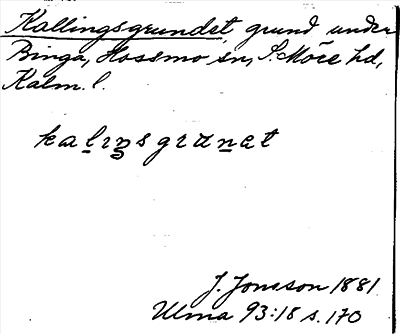 Kallingsgrundet, grund under
Binga, Hossmo sn, S. Möre hd,
Kalm. l.
kalıŋsgrɯnet
J. Jonsson 1881
Ulma 93:18 s. 170